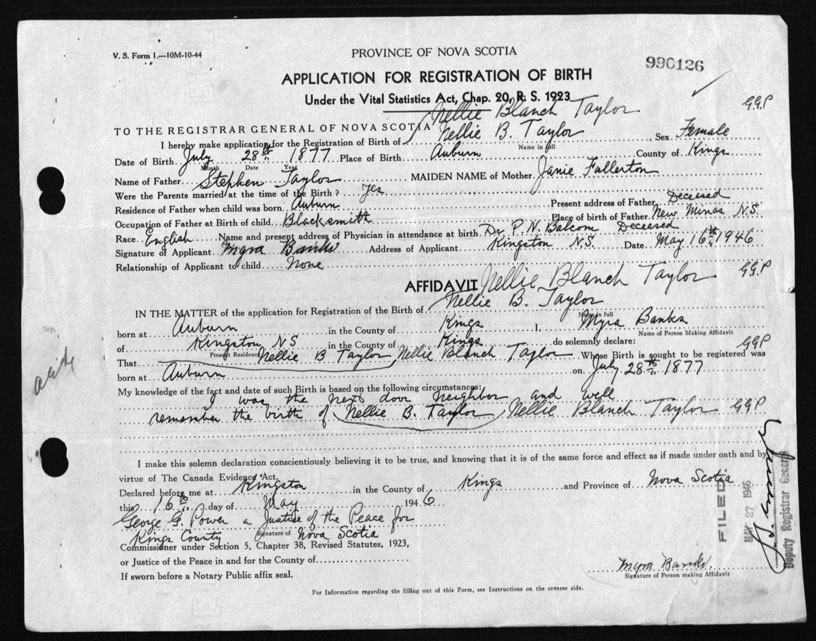 V. S. Form 1.—10M-10-44
PROVINCE OF NOVA SCOTIA
990126
APPLICATION FOR REGISTRATION OF BIRTH
Under the Vital Statistics Act, Chap. 20, R. S. 1923
Nellie Blanch Taylor GGP
TO THE REGISTRAR GENERAL OF NOVA SCOTIA
I hereby make application for the Registration of Birth of Nellie B. Taylor Sex Female
Name in full
Date of Birth July 28th 1877 Place of Birth Auburn County of Kings
Month Date Year
Name of Father Stephen Taylor MAIDEN NAME of Mother Janie Fullerton
Were the Parents married at the time of the Birth? Yes
Residence of Father when child was born Auburn Present address of Father Deceased
Occupation of Father at Birth of child Blacksmith Place of birth of Father New Minas N.S.
Race English Name and present address of Physician in attendance at birth Dr. P. N. Balcom Deceased
Signature of Applicant Myra Banks Address of Applicant Kingston N.S. Date May 16th 1946
Relationship of Applicant to child None
AFFIDAVIT Nellie Blanch Taylor GGP
IN THE MATTER of the application for Registration of the Birth of Nellie B. Taylor
in full
born at Auburn in the County of Kings I, Myra Banks
Name of Person Making Affidavit
of Kingston NS in the County of Kings do solemnly declare:
Present Residence
That Nellie B Taylor Nellie Blanch Taylor Whose Birth is sought to be registered was GGP
born at Auburn on July 28th 1877
My knowledge of the fact and date of such Birth is based on the following circumstances:
I was the next door neighbor and well
remember the birth of Nellie B. Taylor Nellie Blanch Taylor GGP
I make this solemn declaration conscientiously believing it to be true, and knowing that it is of the same force and effect as if made under oath and by
virtue of The Canada Evidence Act.
Declared before me at Kingston in the County of Kings and Province of Nova Scotia
this 16th day of May 1946
George G. Power a Justice of the Peace for
Kings County Nova Scotia
Signature of
Commissioner under Section 5, Chapter 38, Revised Statutes, 1923,
or Justice of the Peace in and for the County of
If sworn before a Notary Public affix seal.
Myra Banks
Signature of Person making Affidavit
For Information regarding the filling out of this Form, see Instructions on the reverse side.
FILED
MAY 27 1946
Deputy Registrar General